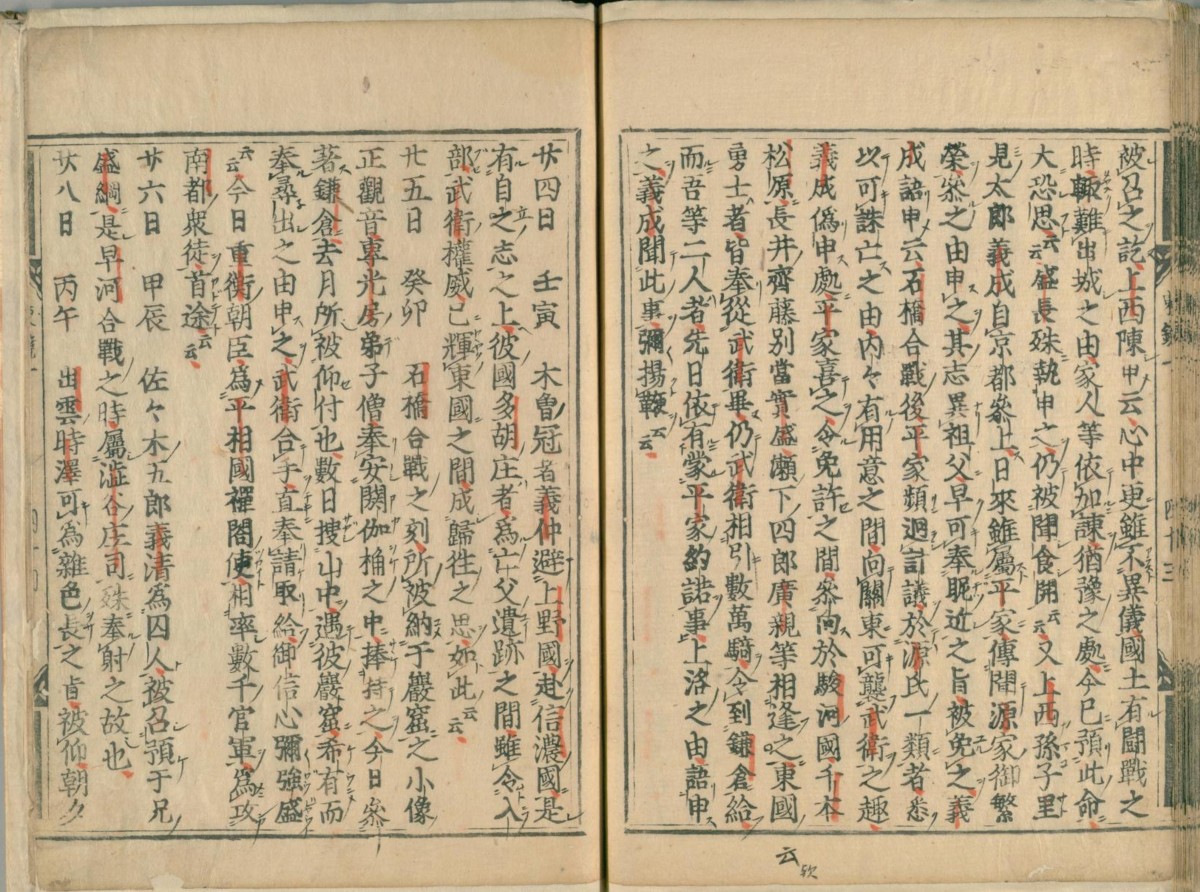 被召之訖上西陳申云心中更雖不異儀國土有鬪戰之
時輙難出城之由家人等依加諫猶豫之處今已預此命
大恐思云云盛長殊執申之仍被聞食開云云又上西孫子里
見太郎義成自京都參上日來雖屬平家傳聞源家御繁
榮參之由申之其志異祖父早可奉眤近之旨被免之義
成語申云石橋合戰後平家頻迴計議於源氏一類者悉
以可誅亡之由内々有用意之間向關東可襲武衛之趣
義成僞申處平家喜之令免許之間參向於駿河國千本
松原長井齊藤別當實盛瀬下四郎廣親等相逢之東國
勇士者皆奉從武衛畢仍武衛相引數萬騎令到鎌倉給
而吾等二人者先日依有蒙平家約諾事上洛之由語申
之義成聞此事彌揚鞭云云
云歟
廿四日 壬寅 木曾冠者義仲避上野國赴信濃國是
有自立之志之上彼國多胡庄者爲亡父遺跡之間雖令入
部武衛權威已輝東國之間成歸往之思如此云云
廿五日 癸卯 石橋合戰之刻所被納于巖窟之小像
正觀音專光房弟子僧奉安閼伽桶之中捧持之今日參
著鎌倉去月所被仰付也數日捜山中遇彼巖窟希有而
奉尋出之由申之武衛合手直奉請取給御信心彌強盛
云云今日重衡朝臣爲平相國禪閤使相率數千官軍爲攻
南都衆徒首途云云
廿六日 甲辰 佐々木五郎義清爲囚人被召預于兄
盛綱是早河合戰之時屬澁谷庄司殊奉射之故也
廿八日 丙午 出雲時澤可爲雜色長之旨被仰朝夕